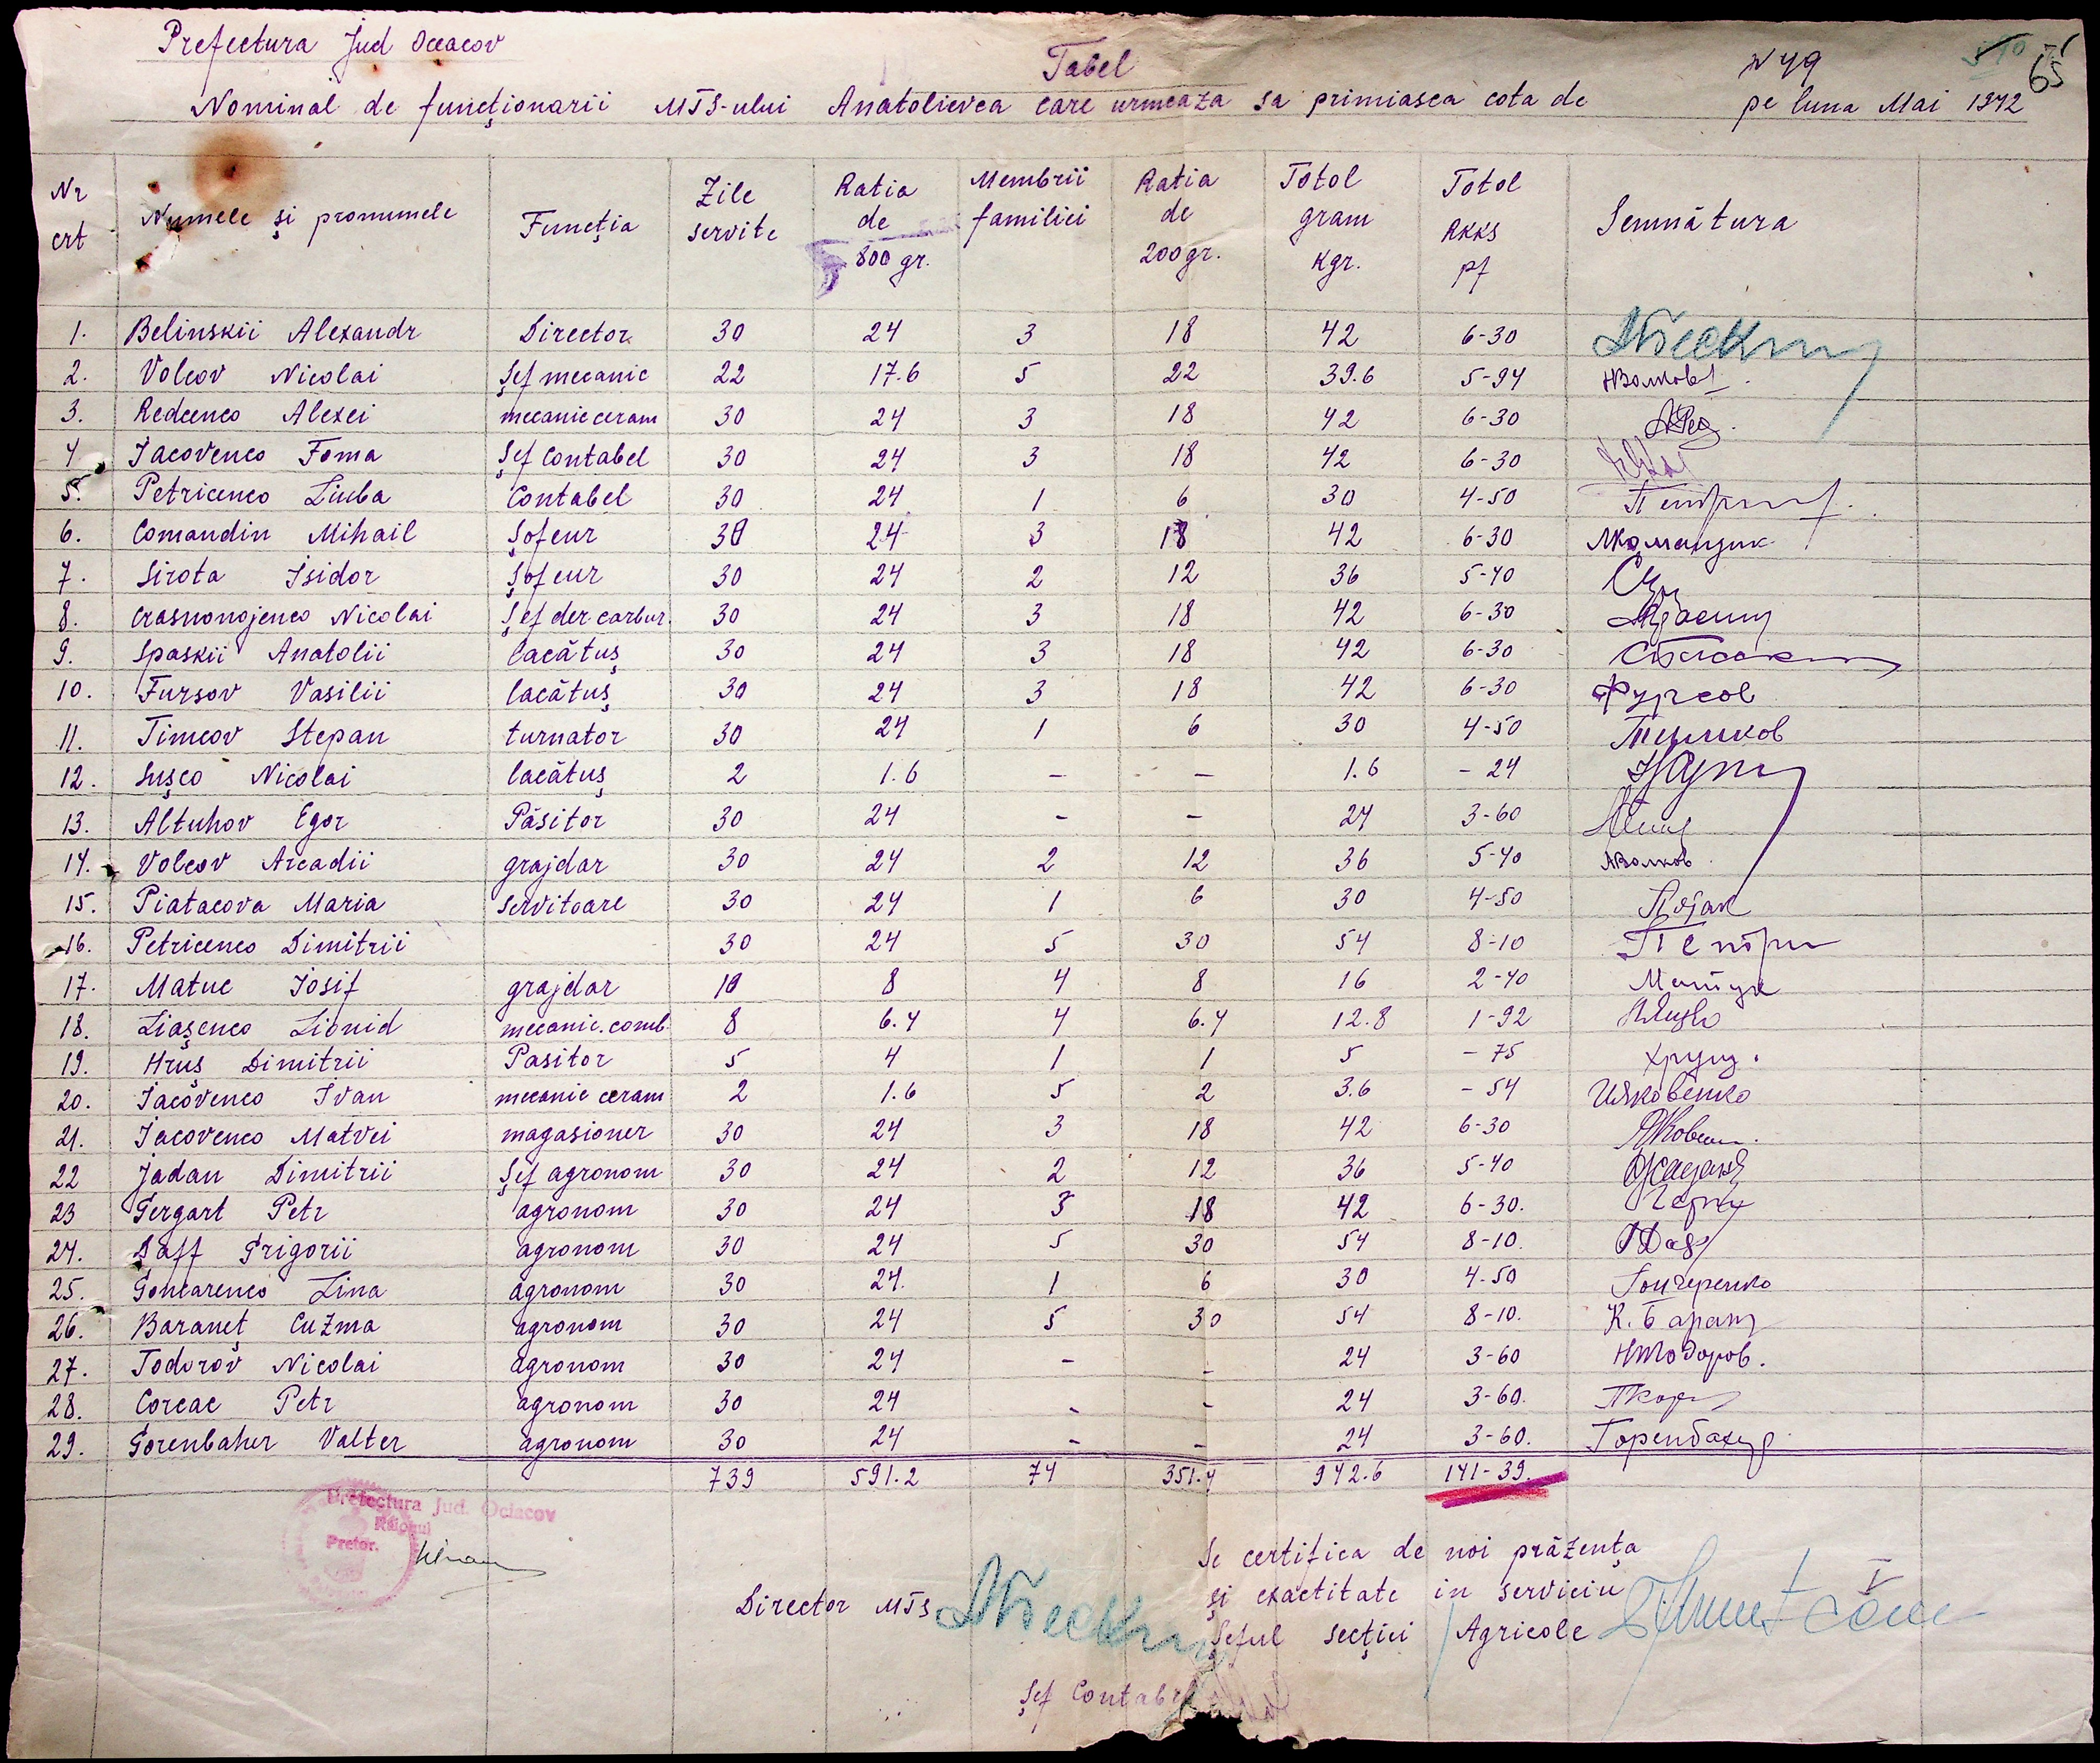 Prefectura Jud Oceacov
Tabel
N 49
65
Nominal de funcţionarii MTS-ului Anatolievca care urmeaza sa primiasca cota de pe luna Mai 1942
Nr crt Numele şi pronumele Funcţia Zile servite Ratia de 800 gr. Membrii familiei Ratia de 200 gr. Totol gram Kgr. Totol RKKS pf Semnătura
1. Belinskii Alexandr Director 30 24 3 18 42 6-30
2. Volcov Nicolai Şef mecanic 22 17.6 5 22 39.6 5-94 НВолков
3. Redcenco Alexei mecanic ceram 30 24 3 18 42 6-30
4 Iacovenco Foma Şef Contabel 30 24 3 18 42 6-30
5. Petricenco Liuba Contabel 30 24 1 6 30 4-50
6. Comandin Mihail Şofeur 30 24 3 18 42 6-30
7. Sirota Isidor Şofeur 30 24 2 12 36 5-40
8. Crasnonojenco Nicolai Şef der carbur. 30 24 3 18 42 6-30
9. Spaskii Anatolii lacătuş 30 24 3 18 42 6-30
10. Fursov Vasilii lacătuş 30 24 3 18 42 6-30 Фурсов
11. Timcov Stepan turnator 30 24 1 6 30 4-50
12. Suşco Nicolai lacătuş 2 1.6 – – 1.6 - 24
13. Altuhov Egor Păsitor 30 24 – – 24 3-60
14. Volcov Arcadii grajdar 30 24 2 12 36 5-40 АВолков
15. Piatacova Maria servitoare 30 24 1 6 30 4-50
16. Petricenco Dimitrii 30 24 5 30 54 8-10
17. Matuc Iosif grajdar 10 8 4 8 16 2-40 Матук
18. Liaşenco Lionid mecanic. comb. 8 6.4 4 6.4 12.8 1-92
19. Hruş Dimitrii Pasitor 5 4 1 1 5 - 75 Хрущ.
20. Iacovenco Ivan mecanic ceram 2 1.6 5 2 3.6 - 54 ИЯковенко
21. Iacovenco Matvei magasioner 30 24 3 18 42 6-30
22 Jadan Dimitrii Şef agronom 30 24 2 12 36 5-40
23 Gergart Petr agronom 30 24 3 18 42 6-30.
24. Daff Grigorii agronom 30 24 5 30 54 8-10.
25. Goncarenco Lina agronom 30 24. 1 6 30 4-50 Гончеренко
26. Baraneţ Cuzma agronom 30 24 5 30 54 8-10.
27. Todorov Nicolai agronom 30 24 – – 24 3-60 НТодоров.
28. Coreac Petr agronom 30 24 - - 24 3-60.
29. Gorenbaher Valter agronom 30 24 - – 24 3-60. Горенбахер
739 591.2 74 351.4 942.6 141-39.
Prefectura Jud. Ociacov
Raionul
Pretor.
Se certifica de noi prăzenţa
şi exactitate in serviciu
Director MTS
Şeful secţiei Agricole
Şef Contabel